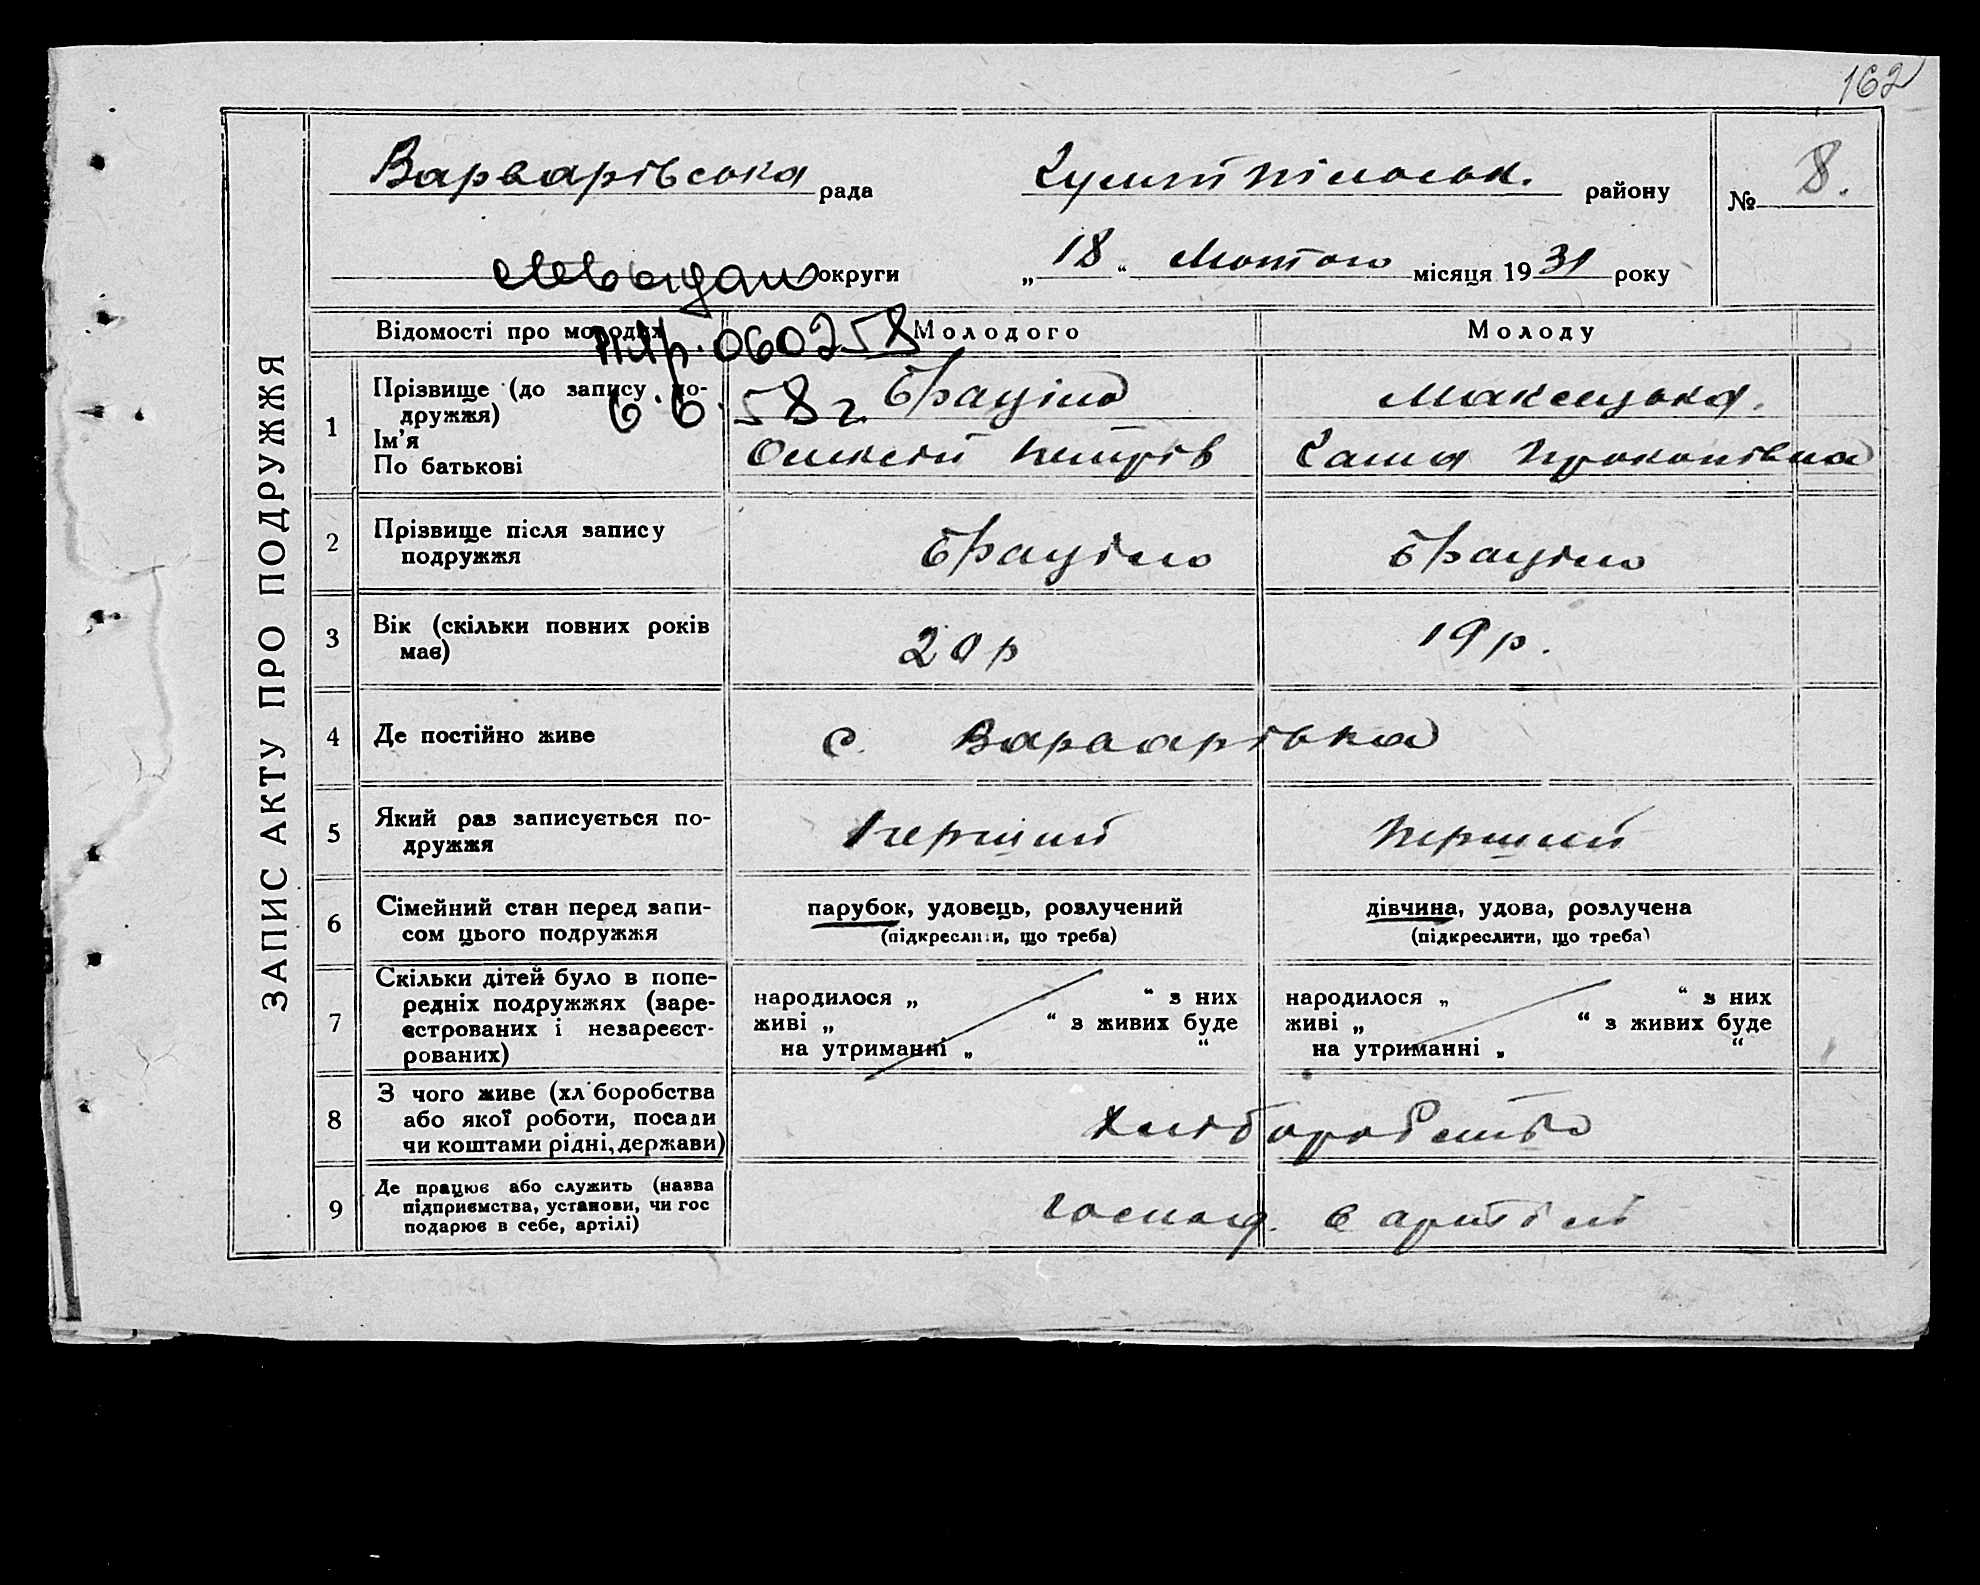 162
ЗАПИС АКТУ ПРО ПОДРУЖЖЯ
Варварівська рада
району
№ 8.
округи
„ 18 “ Лютого місяця 1931 року
Відомості про молодих
Молодого
Молоду
060258
6.6.58 г.
1
Прізвище (до запису по-
дружжя)
Ім’я
По батькові
Браціло
Олексій Петрів
Максецька.
Прокопівна
2
Прізвище після запису
подружжя
Браціло
Браціло
3
Вік (скільки повних років
має)
20 р
19 р.
4
Де постійно живе
с. Варварівка
5
Який раз записується по-
дружжя
Перший
Перший
6
Сімейний стан перед запи-
сом цього подружжя
парубок, удовець, розлучений
(підкреслити, що треба)
дівчина, удова, розлучена
(підкреслити, що треба)
7
Скільки дітей було в попе-
редніх подружжях (заре-
єстрованих і незареєст-
рованих)
народилося „ “ з них
живі „ “ з живих буде
на утриманні „ “
народилося „ “ з них
живі „ “ з живих буде
на утриманні „ “
8
З чого живе (хліборобства
або якої роботи, посади
чи коштами рідні, держави)
Хліборобство
9
Де працює або служить (назва
підприємства, установи, чи гос
подарює в себе, артілі)
господ. в артілі